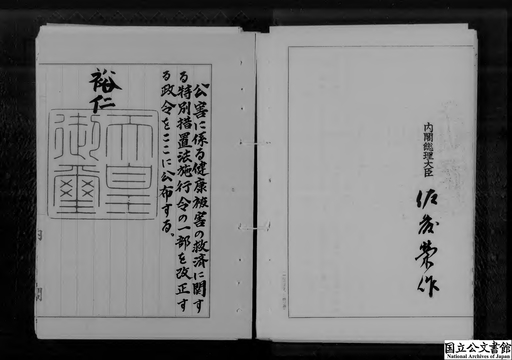 内閣総理大臣
佐藤榮作
公害に係る健康被害の救済に関す
る特別措置法施行令の一部を改正す
る政令をここに公布する。
裕仁
天皇
御璽
国立公文書館
National Archives of Japan